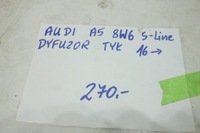 AUDI A5 8W6 S-Line
DYFUZOR TYŁ 16→
270.-